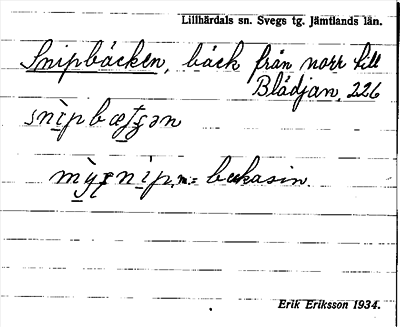 Lillhärdals sn. Svegs tg. Jämtlands län.
Snipbäcken, bäck från norr till
Blädjan, 226
snìpbæƫʂən
mỳrnìp, m = beckasin.
Erik Eriksson 1934.